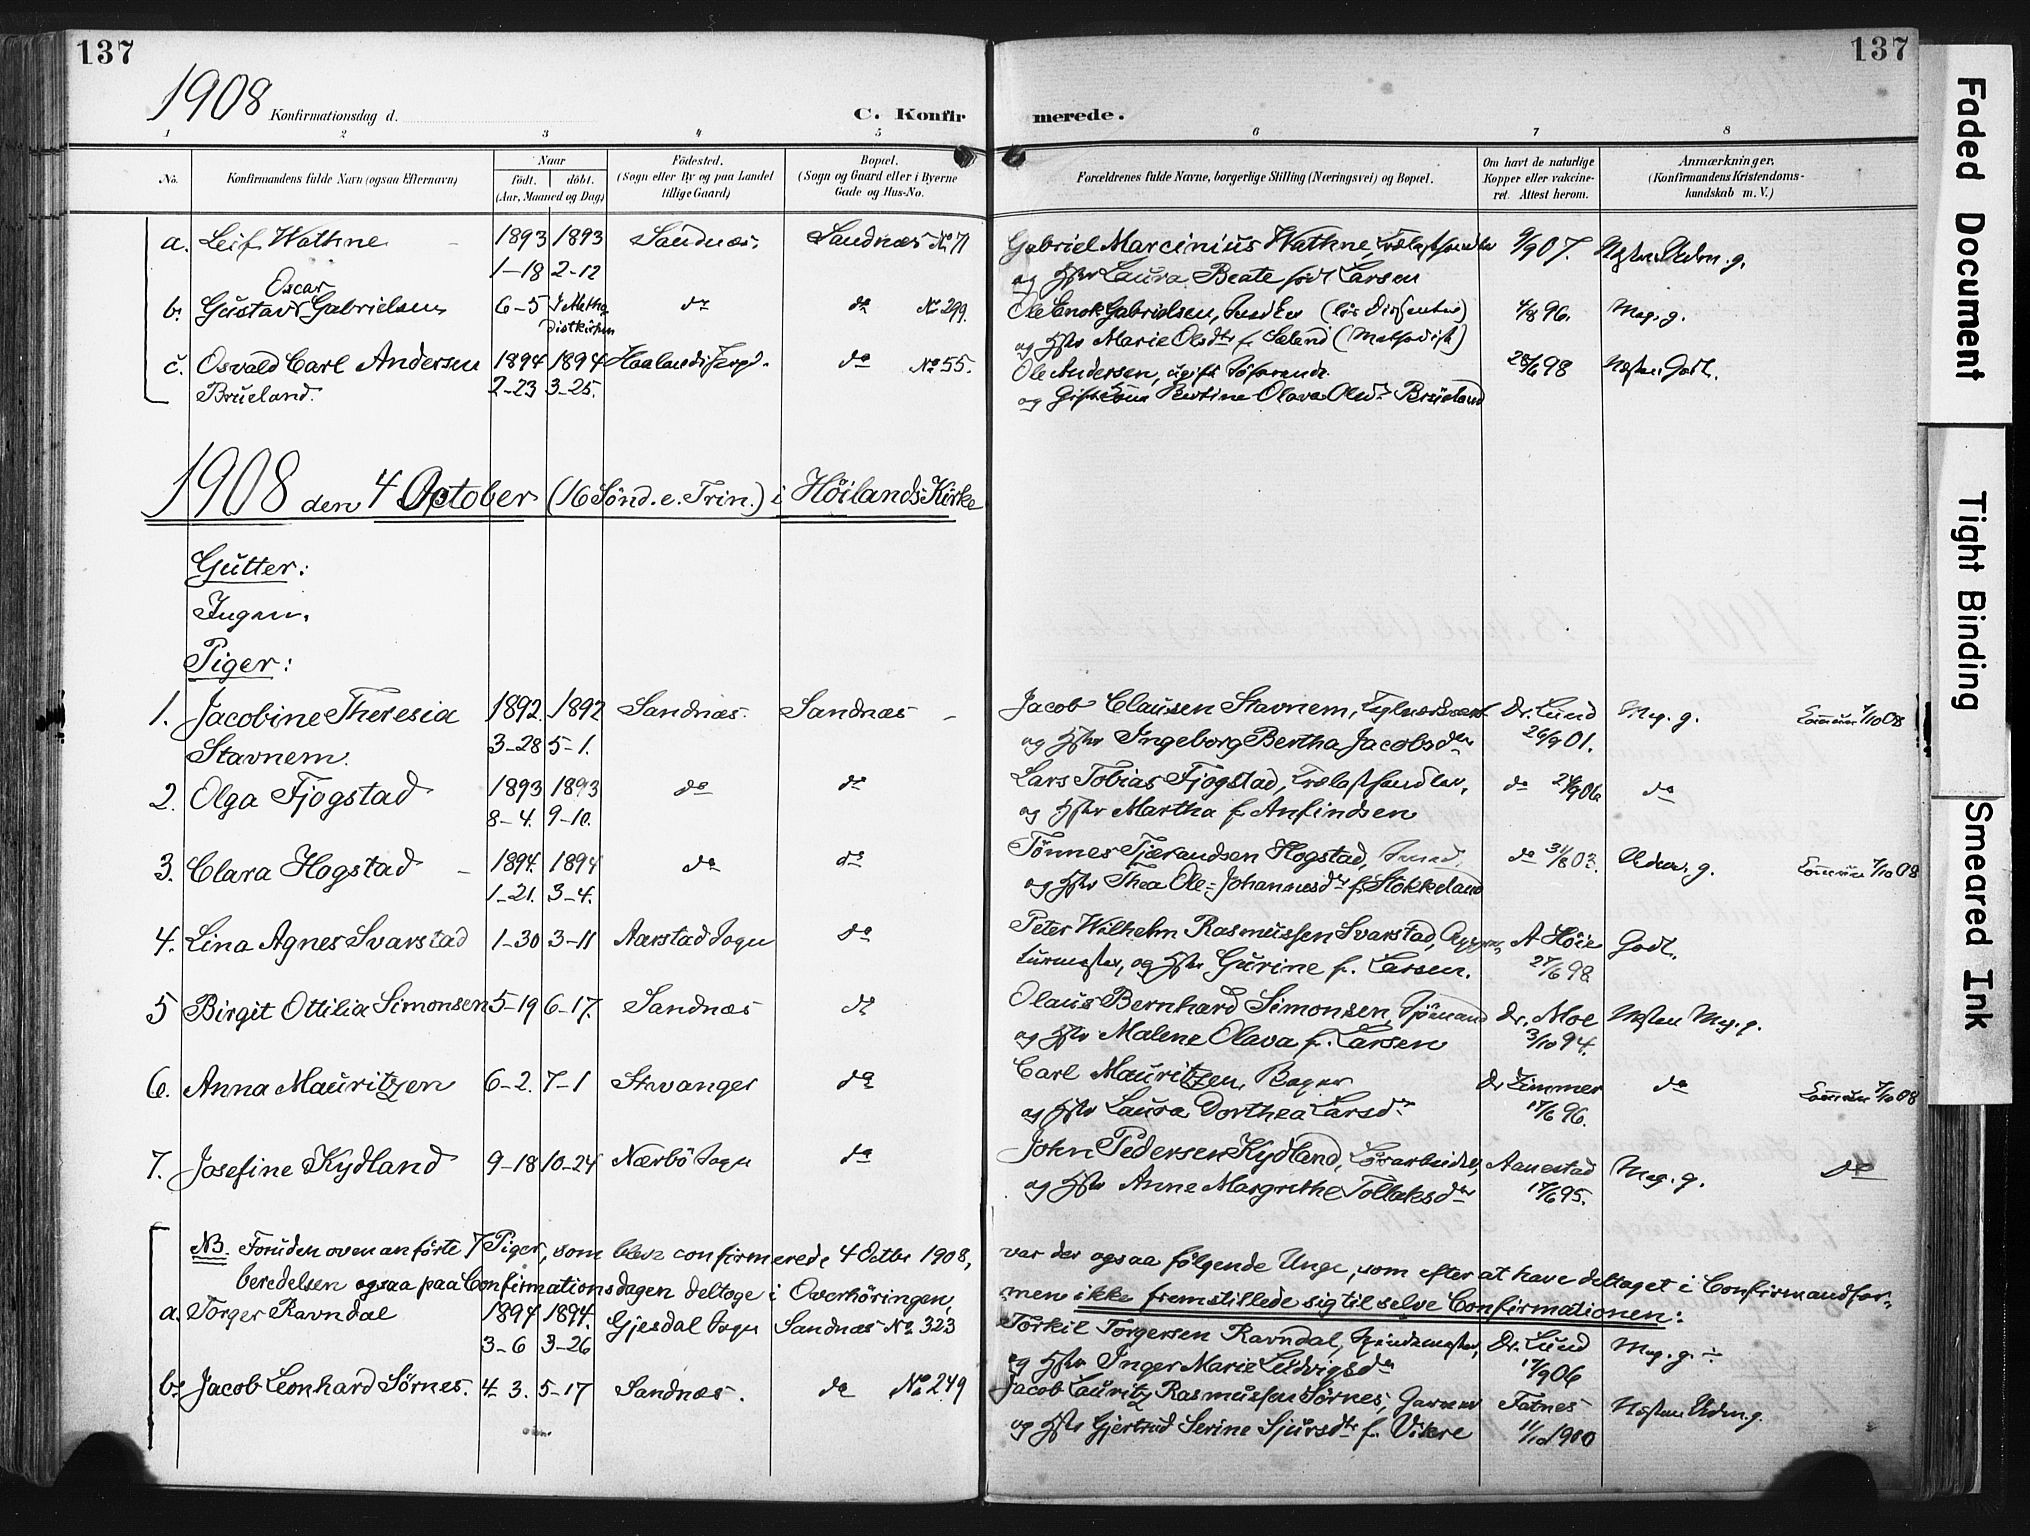 137
137
1908 Konfirmationsdag d.
C. Konfir merede.
1 2 3 4 5 6 7 8
No.
Konfirmandens fulde Navn (ogsaa Efternavn)
Naar
födt. döbt.
(Aar, Maaned og Dag)
Födested.
(Sogn eller By og paa Landet
tillige Gaard)
Bopæl.
(Sogn og Gaard eller i Byerne
Gade og Hus-No.
Forældrenes fulde Navne, borgerlige Stilling (Næringsvei) og Bopæl.
Om havt de naturlige
Kopper eller vakcine-
ret. Attest herom.
Anmærkninger.
(Konfirmandens Kristendoms-
kundskab m. V.)
a. Leif Wathne 1893 1893 Sandnæs. Sandnæs No 71 Gabriel Marcinius Wathne, Trælasthandler 9/9 07.
1-18 2-12 og Hstr Laura Beate født Larsen
Oscar
b. Gustav Gabrielsen 6-5 do do No 299. Ole Enok Gabrielsen, 4/8 96. Meg. g.
og Hstr Marie Olsdtr f. Sæland (Methodist)
c. Osvald Carl Andersen 1894 1894 do No 55. Ole Andersen, ugift 28/6 98 Næsten Godt.
Brueland. 2-23 3-25. og Olava Olsdtr Brueland
1908 den 4 October (16 Sønd. e. Trin.) i Høilands Kirke
Gutter:
Ingen.
Piger:
1. Jacobine Theresia 1892. 1892 Sandnæs. Sandnæs Jacob Clausen Stavnem, Dr. Lund Meg. g. 7/10 08
Stavnem. 3-28 5-1. og Hstr Ingeborg Bertha Jacobsdtr 26/9 01.
2. Olga Fjogstad 1893 1893 do do Lars Tobias Fjogstad, Trælasthandler, do 24/9 06 do
8-4. 9-10. og Hstr Martha f. Anfindsen
3. Clara Hogstad 1894. 1894 do do Tønnes Tjærandsen Hogstad, do 31/8 03. Udm. g. 7/10 08
1-21. 3-4. og Hstr Thea Ole-Johannesdtr f. Stokkeland
4. Lina Agnes Svarstad 1-30 3-11 Aarstad Sogn do Peter Wilhelm Rasmussen Svarstad, A. Høie Godt.
turmester, og Hstr Gurine f. Larsen. 27/6 98
5 Birgit Ottilia Simonsen 5-19 6-17. Sandnæs do Olaus Bernhard Simonsen, Sjømand Dr. Moe Næsten Meg. g.
og Hstr Malene Olava f. Larsen 3/10 94.
6. Anna Mauritzen 6-2. 7-1 Stavanger do Carl Mauritzen, Bager Dr Zimmer do 7/10 08
og Hstr Laura Dorthea Larsdtr 17/6 96.
7. Josefine Kydland 9-18 10-24 Nærbø Sogn do John Pedersen Kydland, Løsarbeider, Aanestad Meg. g. do
og Hstr Anne Margrethe Tollaksdtr 17/6 95.
NB. Foruden ovenanførte 7 Piger, som bleve confirmerede 4 Octbr 1908, var der ogsaa følgende Unge, som efter at have deltaget i Confirmandfor-
beredelsen ogsaa paa Confirmationsdagen deltoge i Overhøringen, men ikke fremstillede sig til selve Confirmationen:
a. Torger Ravndal 1894 1894. Gjesdal Sogn Sandnæs No 323 Torkil Torgersen Ravndal, Dr. Lund Meg. g. ÷
3-6 3-26 og Hstr Inger Marie Ludvigsdtr 17/9 06
b. Jacob Leonhard Sørnes. 4-3. 5-17 Sandnæs. do No 249 Jacob Lauritz Rasmussen Sørnes, Garver Fatnes Næsten Udm. g.
og Hstr Gjertrud Serine Sjursdtr f. Vistre 11/10 1900
Faded Document
Tight Binding
Smeared Ink